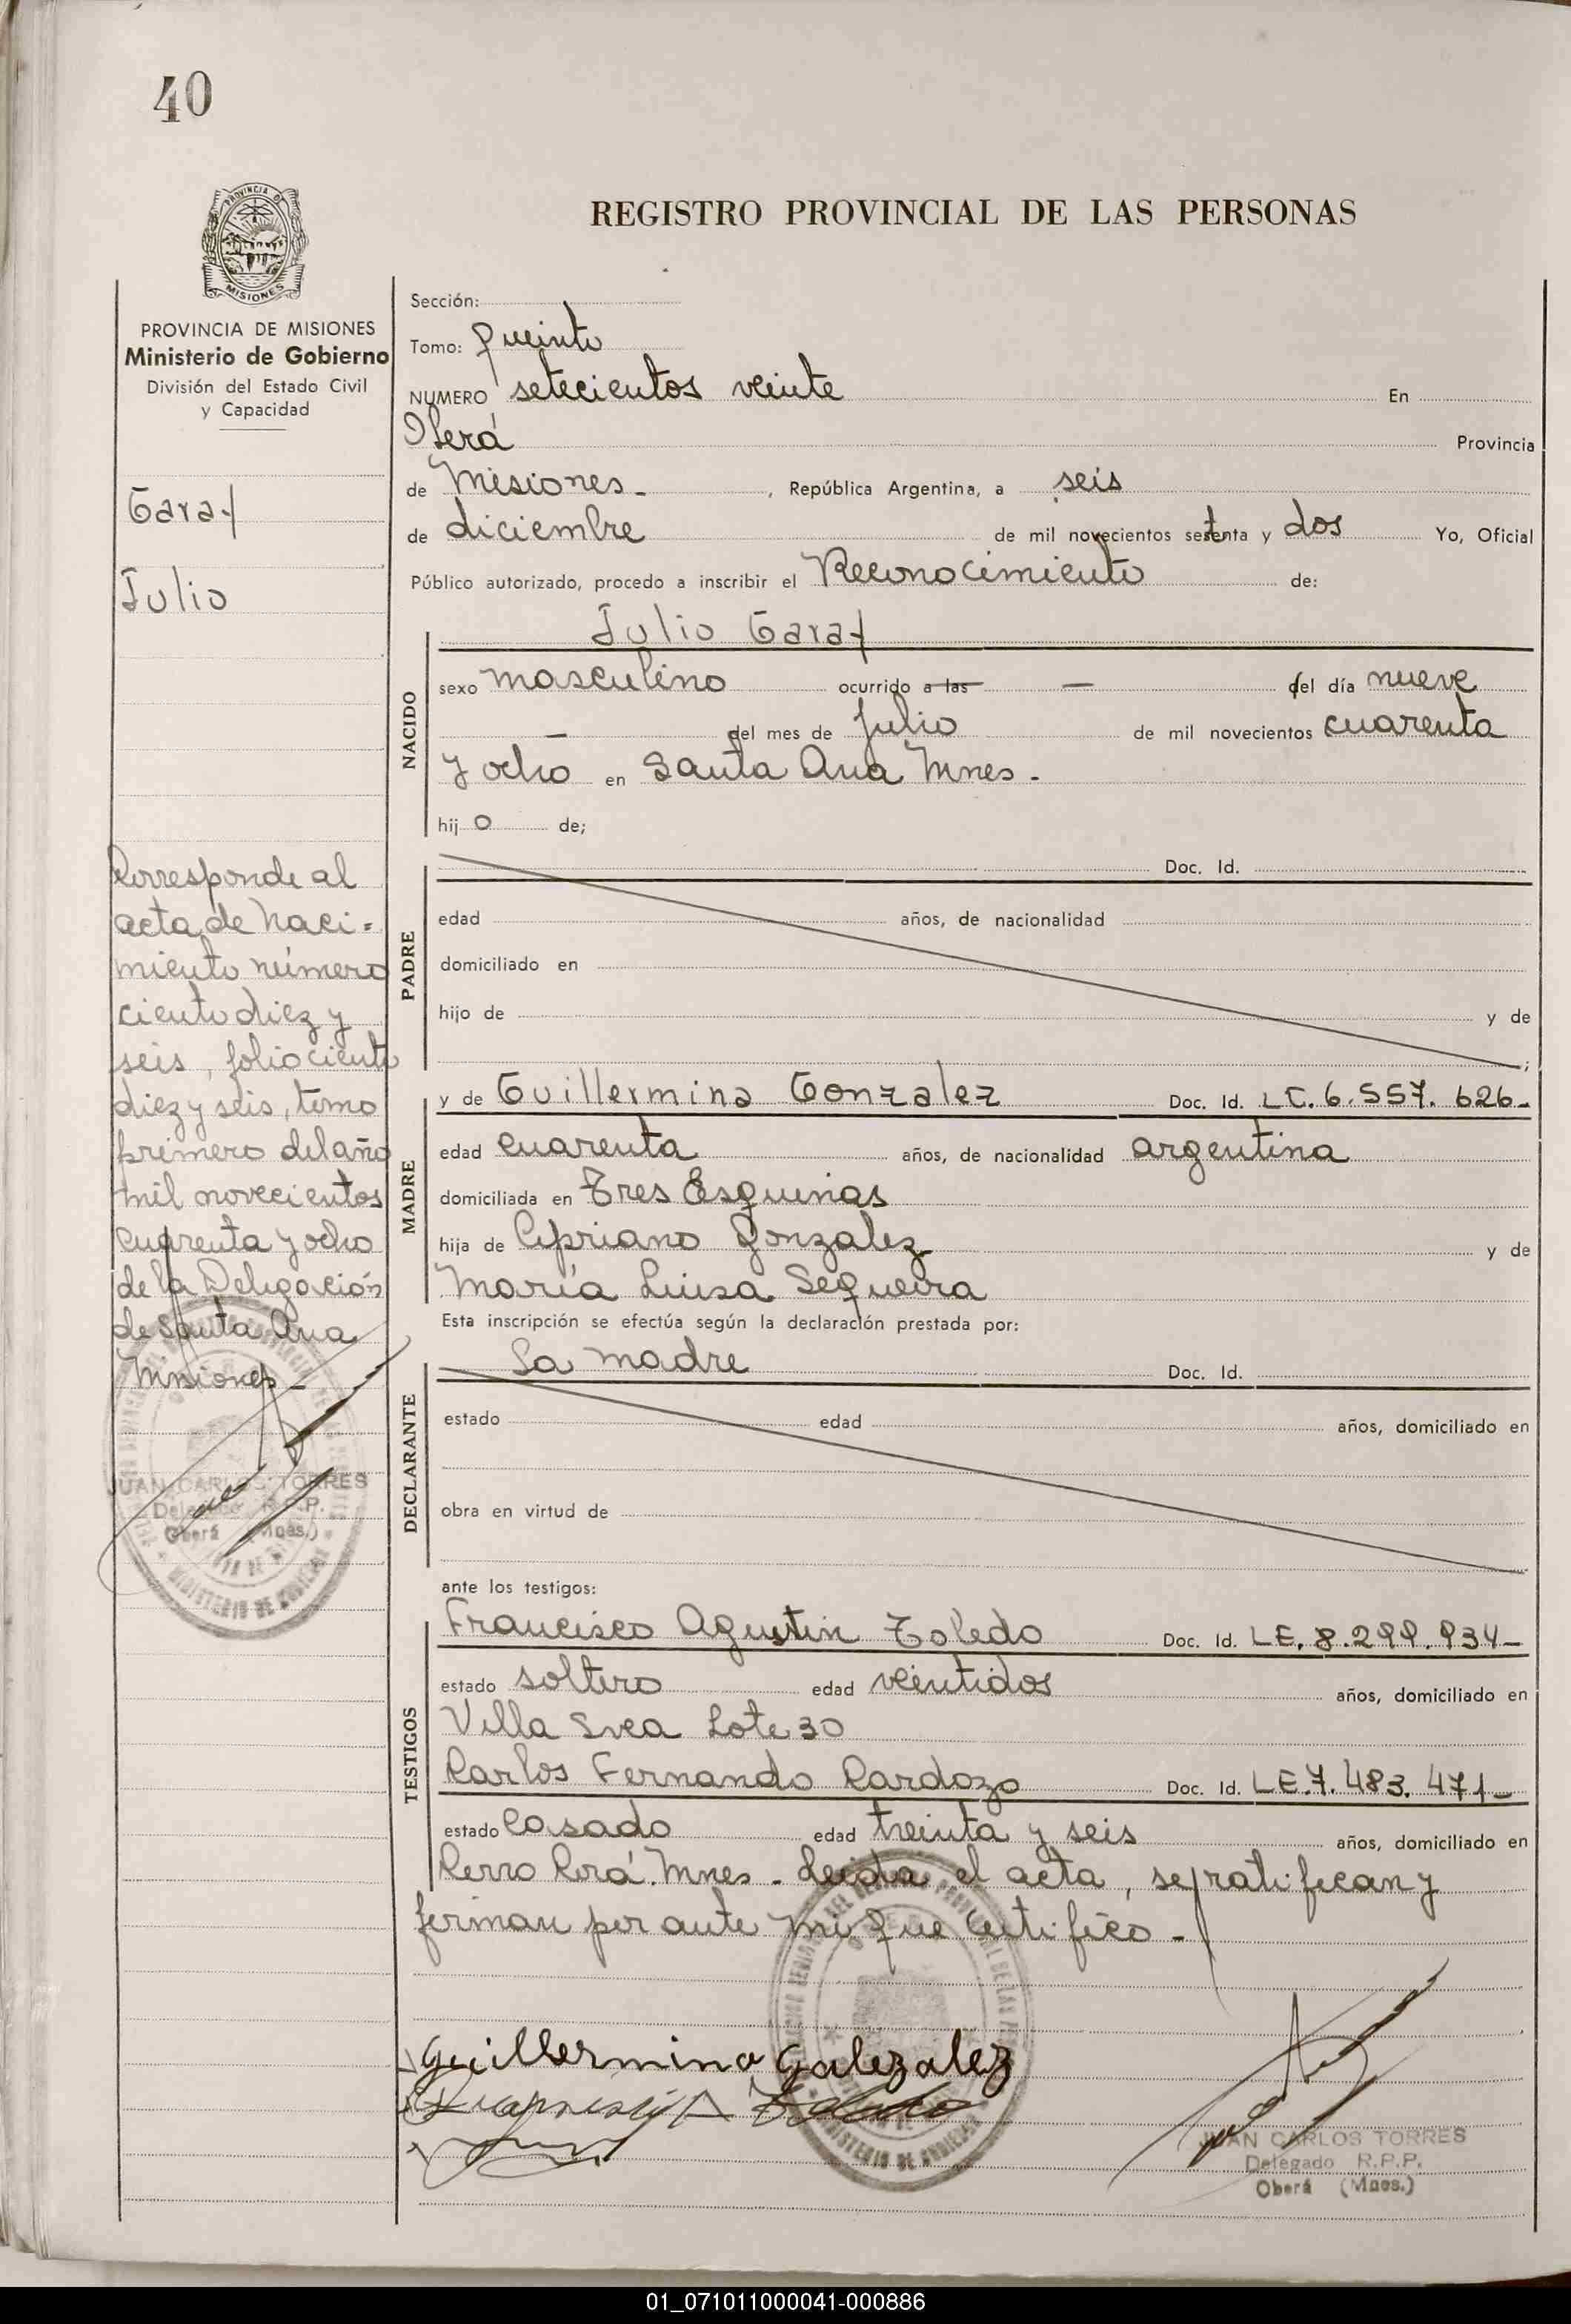 40
PROVINCIA DE
MISIONES
REGISTRO PROVINCIAL DE LAS PERSONAS
PROVINCIA DE MISIONES
Ministerio de Gobierno
División del Estado Civil
y Capacidad
Garay
Julio
Corresponde al
acta de naci=
miento número
ciento diez y
seis, folio ciento
diez y seis, tomo
primero del año
mil novecientos
cuarenta y ocho
de la Delegación
de Santa Ana
Misiones -
JUAN CARLOS TORRES
Delegado R.P.P.
Oberá (Mnes.)
MINISTERIO DE GOBIERNO
Sección:
Tomo: quinto
NUMERO setecientos veinte En
Oberá Provincia
de Misiones - , República Argentina, a seis
de diciembre de mil novecientos setenta y dos Yo, Oficial
Público autorizado, procedo a inscribir el Reconocimiento de:
Julio Garay
NACIDO
sexo masculino ocurrido a las — del día nueve
— del mes de julio de mil novecientos cuarenta
y ocho en Santa Ana Mnes -
hij o de;
PADRE
Doc. Id.
edad años, de nacionalidad
domiciliado en
hijo de y de
;
MADRE
y de Guillermina Gonzalez Doc. Id. LC. 6.557.626-
edad cuarenta años, de nacionalidad argentina
domiciliada en Tres Esquinas
hija de Cipriano Gonzalez y de
María Luisa Sequeira
Esta inscripción se efectúa según la declaración prestada por:
DECLARANTE
La madre Doc. Id.
estado edad años, domiciliado en
obra en virtud de
ante los testigos:
TESTIGOS
Francisco Agustin Toledo Doc. Id. LE. 8.299.934-
estado soltero edad veintidos años, domiciliado en
Villa Svea Lote 30
Carlos Fernando Cardozo Doc. Id. LE 7.483.471-
estado casado edad treinta y seis años, domiciliado en
Cerro Corá. Mnes - Leida el acta, se ratifican y
firman por ante mi que certifico -
Guillermina Galezalez
MINISTERIO DE GOBIERNO
JUAN CARLOS TORRES
Delegado R.P.P.
Oberá (Mnes.)
01_071011000041-000886